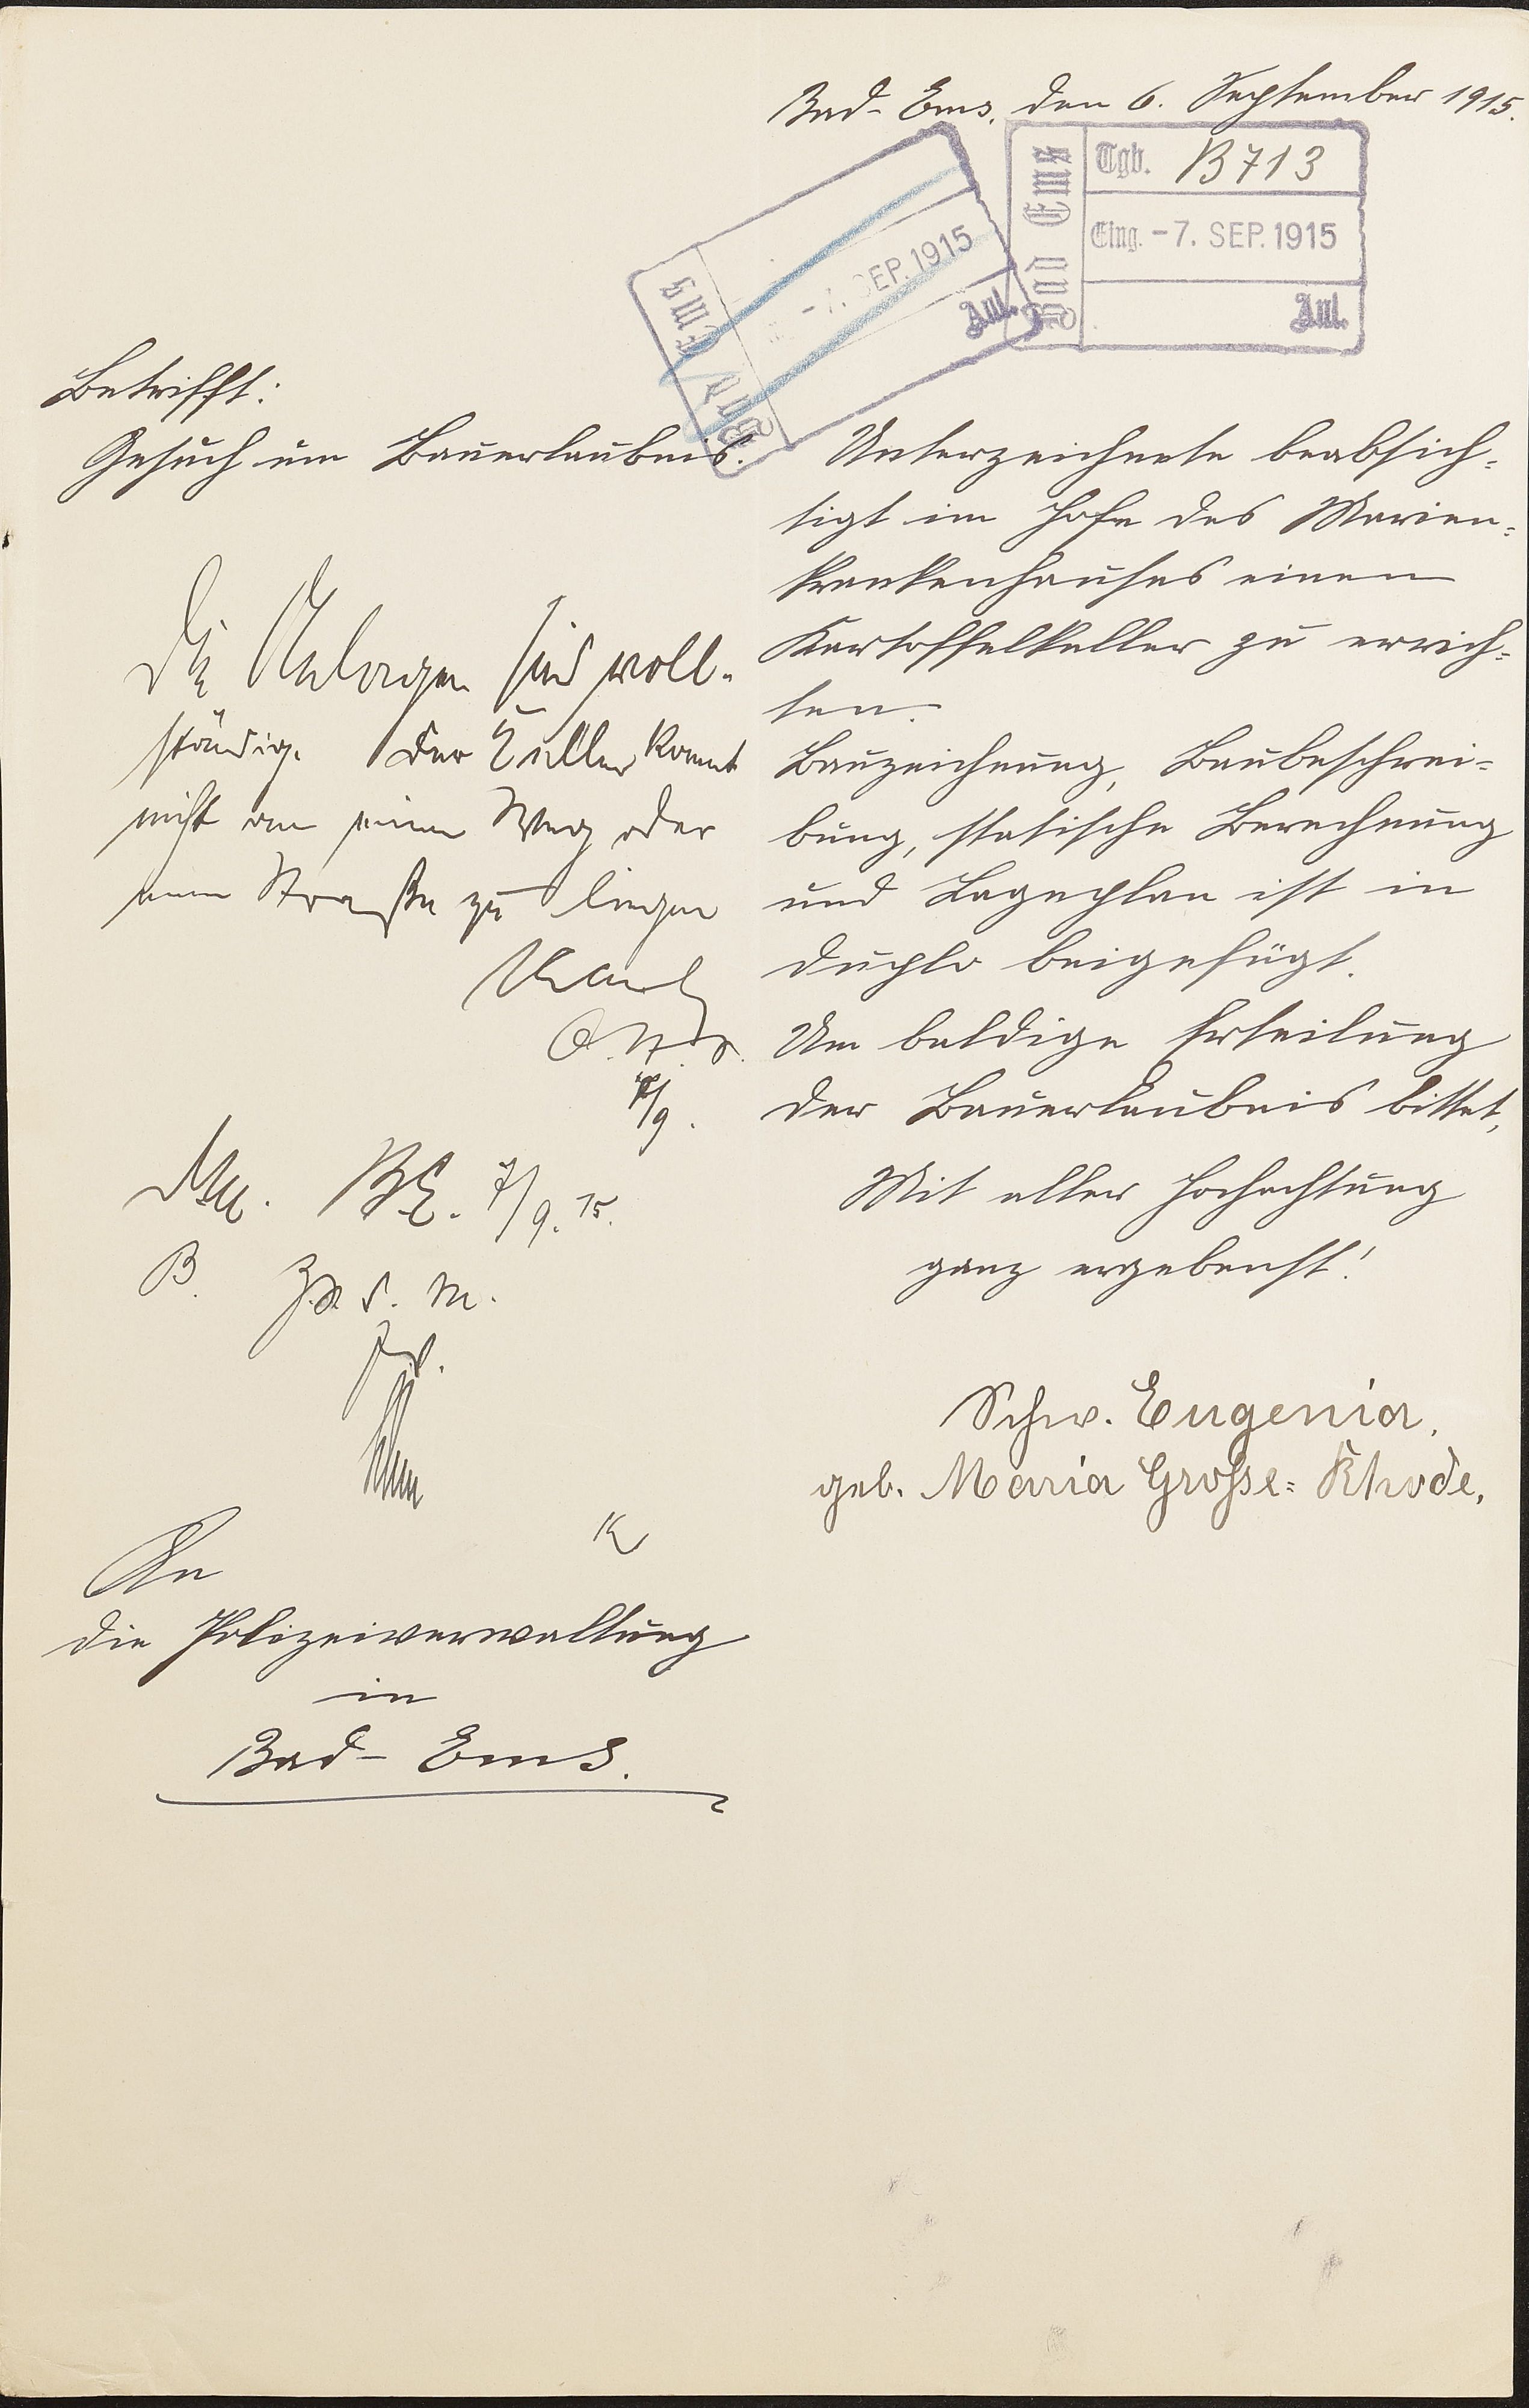 Bad-Ems, den 6. September 1915.
Bad Ems
Tgb. B713
Eing. -7. SEP. 1915
Anl.
Bad Ems
-7. SEP. 1915
Anl.
Betrifft:
Gesuch um Bauerlaubnis.
Unterzeichnete beabsich-
tigt im Hofe des Marien-
krankenhauses einen
Kartoffelkeller zu errich-
ten.
Bauzeichnung, Baubeschrei-
bung, statische Berechnung
und Lageplan ist in
duplo beigefügt.
Um baldige Erteilung
der Bauerlaubnis bittet,
Mit aller Hochachtung
ganz ergebenst!
Schw. Eugenia,
geb. Maria Große-Rhode,
Die Anlagen sind voll-
ständig. Der Keller kommt
nicht an einen Weg oder
eine Straße zu liegen
/9.
BE. 7/9. 15.
B.
K
An
die Polizeiverwaltung
in
Bad-Ems.